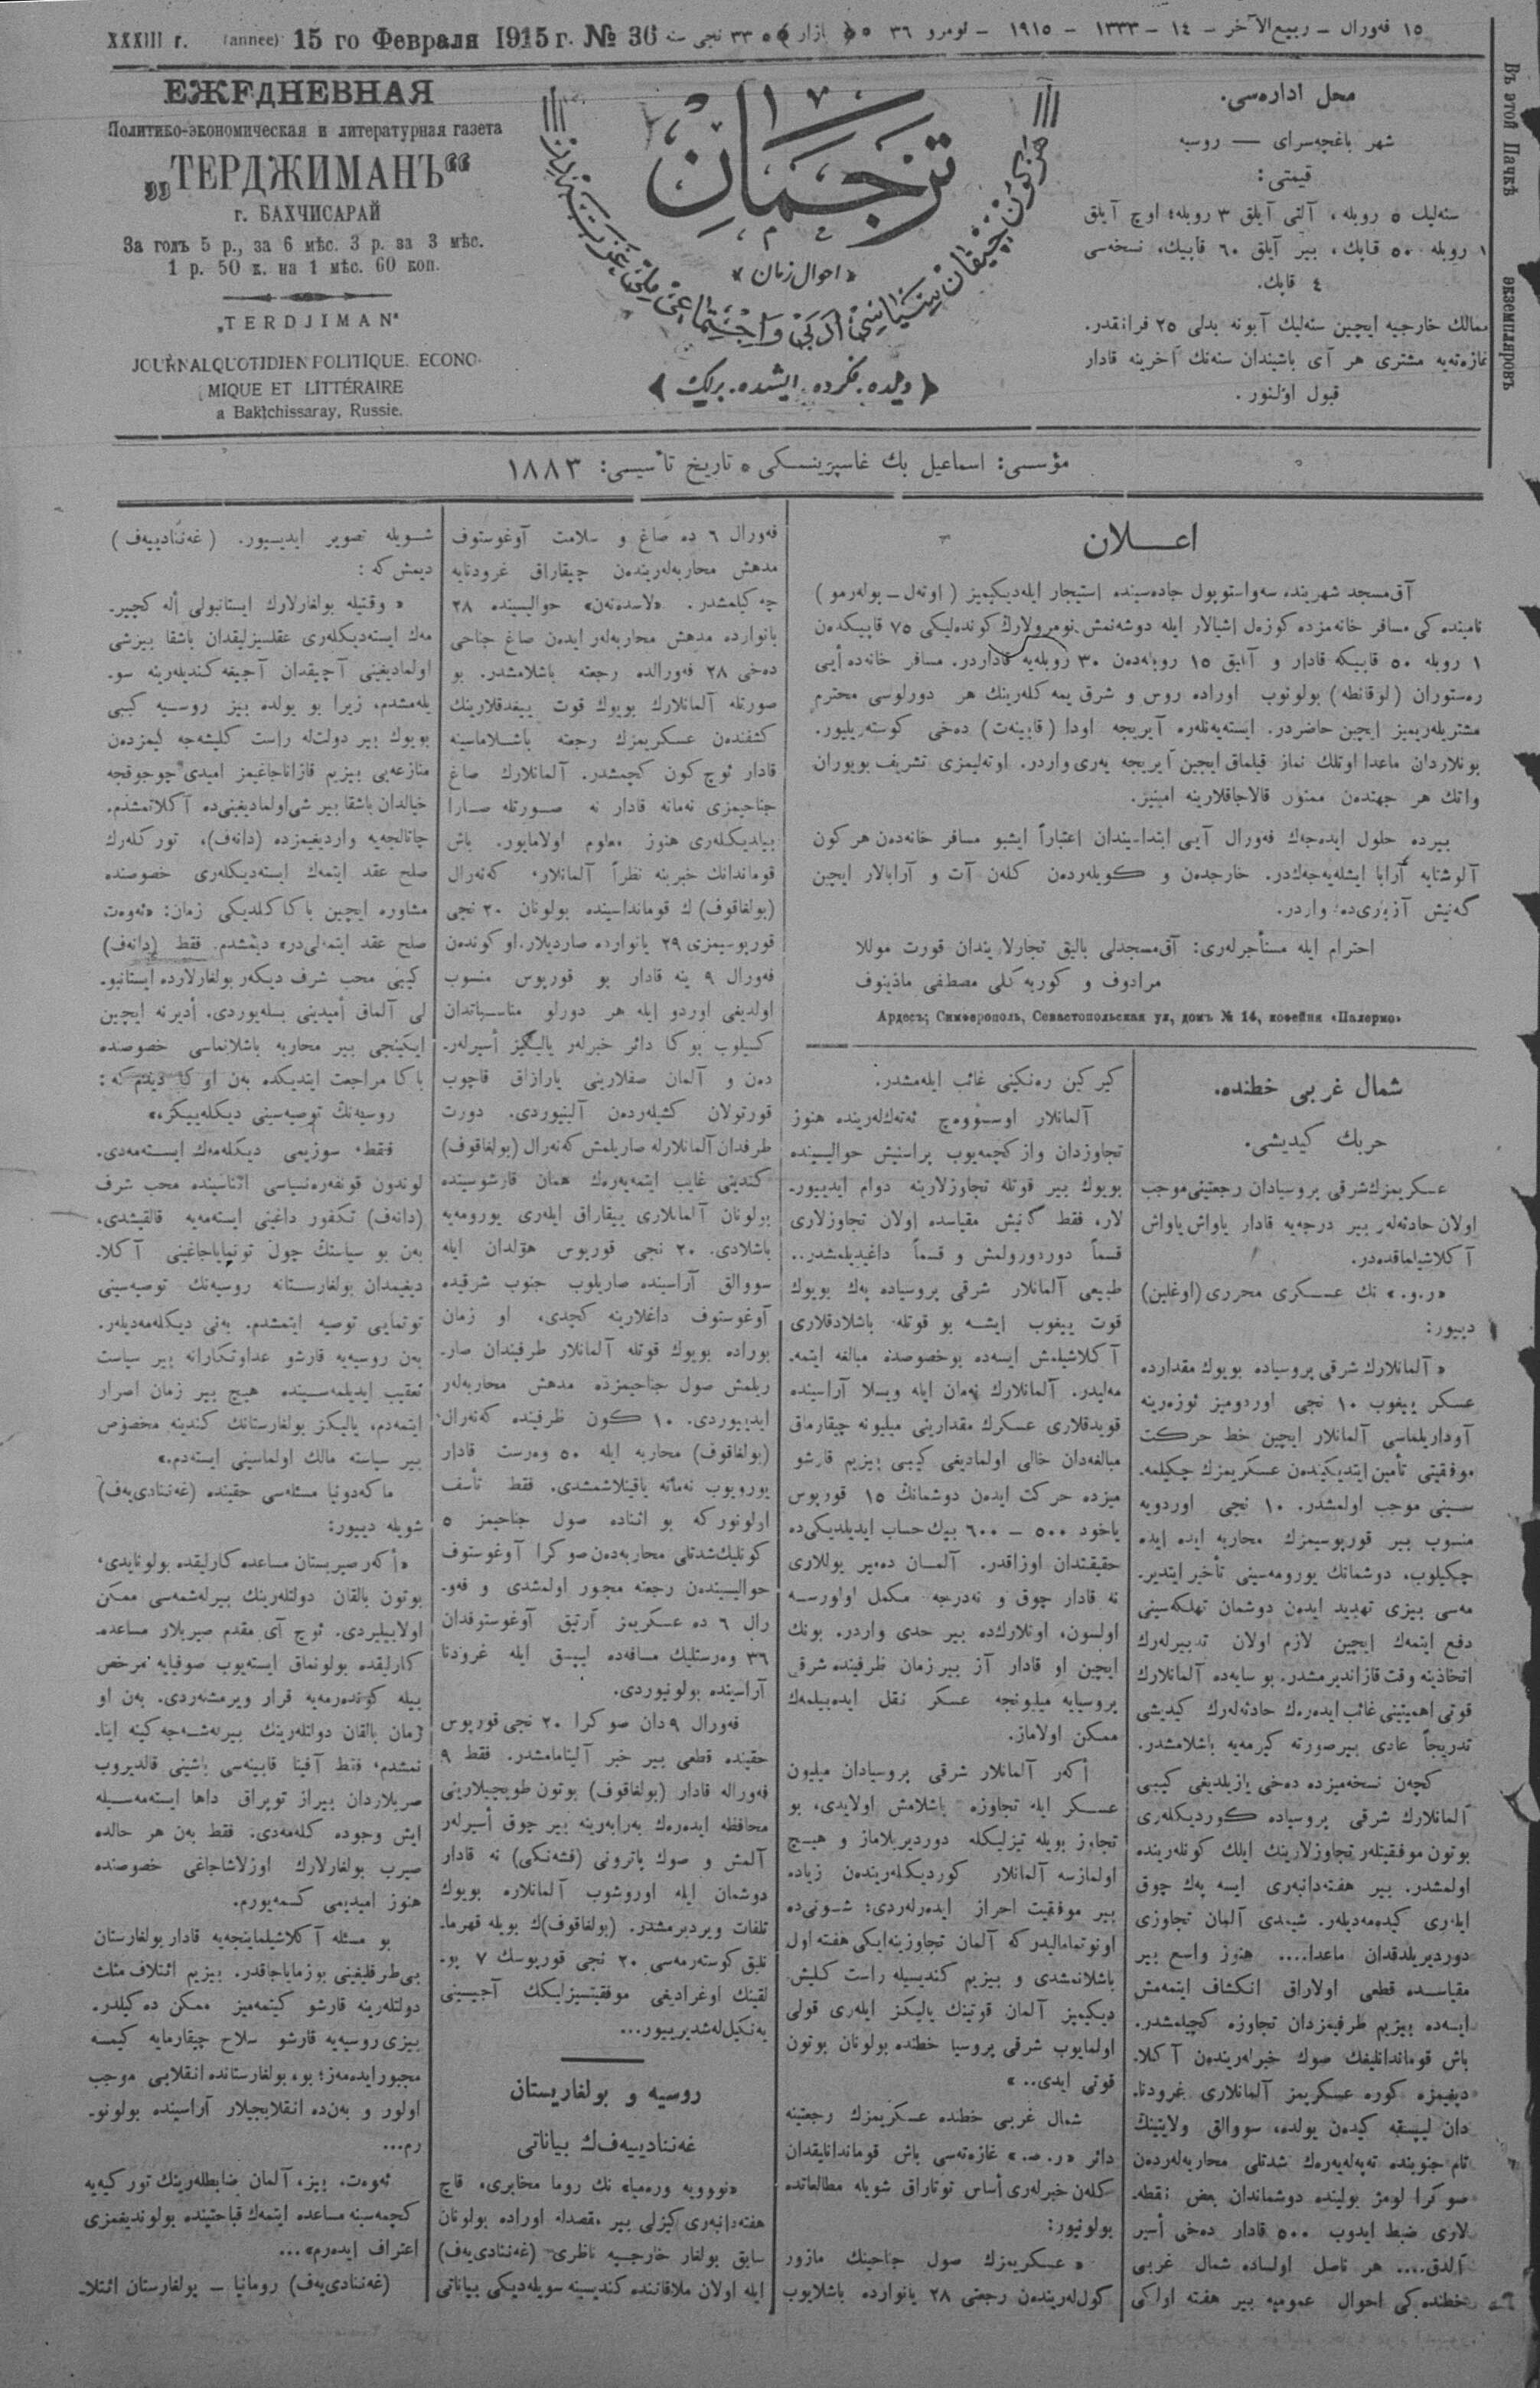 XXXIII г. (annee) 15 го Февраля 1915 г. № 36
١٥ فەورال – ربيع الآخر – ١٤ – ١٣٣٣ – ١٩١٥ – نومرو ٣٦ بازار ٣٣ نجى
ЕЖЕДНЕВНАЯ
Политико-экономическая и литературная газета
„ТЕРДЖИМАНЪ“
г. БАХЧИСАРАЙ
За годъ 5 р., за 6 мѣс. 3 р. за 3 мѣс.
1 р. 50 к. на 1 мѣс. 60 коп.
„TERDJIMAN“
JOURNAL QUOTIDIEN POLITIQUE. ECONO-
MIQUE ET LITTÉRAIRE
a Baktchissaray, Russie.
ترجمان
« احوال زمان »
( ديلده. فكرده. ايشده. برلك )
محل ادارەسى.
شهر باغچەسراى — روسيه
قيمتى:
سنەليك ٥ روبله، آلتى آيلق ٣ روبله؛ اوچ آيلق
١ روبله ٥٠ قاپك، بير آيلق ٦٠ قاپيك، نسخەسى
٤ قاپك.
ممالك خارجيه ايچين سنەليك آبونه بدلى ٢٥ فرانقدر.
غازەتەيه مشترى هر آى باشيندان سنەنك آخرينه قادار
قبول اولنور.
Въ этой Пачкѣ экземпляровъ
مؤسسى: اسماعيل بك غاسپرينسكى ٥ تاريخ تأسيسى: ١٨٨٣
اعــلان
آق‌مسجد شهرينده سەواستوپول جادەسينده استيجار ايلەديكيميز ( اوتەل – پولەرمو )
نامينده‌كى مسافر خانەمزده كوزەل اشيالار ايله دوشەنمش نومرولارڭ كوندەليكى ٧٥ قاپيكدەن
١ روبله ٥٠ قاپيكه قادار و آيلق ١٥ روبلەدەن ٣٠ روبلەيه قاداردر. مسافر خانەده أيى
رەستوران (لوقانطه) بولونوب اوراده روس و شرق يمەكلەرينك هر دورلوسى محترم
مشتريلەريميز ايچين حاضردر. ايستەيەنلەره آيريجه اودا (قابينەت) دەخى كوستەريليور.
بونلاردان ماعدا اوتلك نماز قيلماق ايچين آيريجه يەرى واردر. اوتەليمزى تشريف بويوران
واتك هر جهتدەن ممنون قالاجاقلارينه امينيز.
بيرده حلول ايدەجەك فەورال آيى ابتداسيندان اعتباراً ايشبو مسافر خانەدەن هركون
آلوشتايه آرابا ايشلەيەجەكدر. خارجدەن و كويلەردەن كلەن آت و آرابالار ايچين
كەنيش آزبارى‌ده واردر.
احترام ايله مستأجرلەرى: آق‌مسجدلى باليق تجارلاريندان قورت موللا
مرادوف و كوربەكلى مصطفى ماذينوف
Адресъ; Симферополь, Севастопольская ул, домъ № 14, кофейня «Палермо»
شمال غربى خطنده.
حربك كيديشى.
عسكريمزك شرقى پروسيادان رجعتينى موجب
اولان حادثەلەر بير درجەيه قادار ياواش ياواش
آكلاشيلماقدەدر.
«ر.و.» نك عسكرى محررى (اوغلين)
دييور:
« آلمانلارك شرقى پروسياده بويوك مقدارده
عسكر ييغوب ١٠ نجى اوردوميز ئوزەرينه
آوداريلماسى آلمانلار ايچين خط حركت
موفقيتى تأمين ايتديكيندەن عسكريمزك چكيلمە‌
سينى موجب اولمشدر. ١٠ نجى اوردويه
منسوب بير قورپوسيمزك محاربه ايده ايده
چكيلوب، دوشمانك يورومەسينى تأخير ايتدير‌
مەسى بيزى تهديد ايدەن دوشمان تهلكەسينى
دفع ايتمەك ايچين لازم اولان تدبيرلەرك
اتخاذينه وقت قازانديرمشدر. بو سايەده آلمانلارك
قوتى اهميتينى غائب ايدەرەك حادثەلەرك كيديشى
تدريجاً عادى بيرصورته كيرمەيه باشلامشدر.
كچەن نسخەميزده دەخى يازيلديغى كيبى
آلمانلارك شرقى پروسياده كورديكلەرى
بوتون موفقيتلەر تجاوزلارينك ايلك كونلەرينده
اولمشدر. بير هفتەدانبەرى ايسه پەك چوق
ايلەرى كيدەمەديلەر. شيمدى آلمان تجاوزى
دورديريلدقدان ماعدا.... هنوز واسع بير
مقياسده قطعى اولاراق انكشاف ايتمەمش
ايسەده بيزيم طرفيمزدان تجاوزه كچيلمشدر.
باش قوماندانليغك صوك خبرلەريندەن آكلا‌
ديغيمزه كوره عسكريمز آلمانلارى غرودنا‌
دان ليپسقه كيدەن يولده، سووالق ولايتينك
تام جنوبنده تەپەلەيەرەك شدتلى محاربەلەردەن
صوكرا لومژ يولينده دوشماندان بعض نقطه‌
لارى ضبط ايدوب ٥٠٠ قادار دەخى أسير
آلدق.... هر ناصل اولساده شمال غربى
خطنده‌كى احوال عموميه بير هفته اولكى
كيركين رەنكينى غائب ايلەمشدر.
آلمانلار اوسسووەچ ئەتەكلەرينده هنوز
تجاوزدان وازكچمەيوب پراسنيش حواليسينده
بويوك بير قوتله تجاوزلارينه دوام ايدييور‌
لار، فقط كنيش مقياسده اولان تجاوزلارى
قسماً دوردورولمش و قسماً داغيديلمشدر..
طبيعى آلمانلار شرقى پروسياده پەك بويوك
قوت ييغوب ايشه بو قوتله باشلادقلارى
آكلاشيلمش ايسەده بوخصوصده مبالغه ايتمه‌
مەليدر. آلمانلارك نەمان ايله ويسلا آراسينده
قويدقلارى عسكرك مقدارينى ميليونه چيقارماق
مبالغەدان خالى اولماديغى كيبى بيزيم قارشو
ميزده حركت ايدەن دوشمانڭ ١٥ قورپوس
ياخود ٥٠٠ – ٦٠٠ بيك حساب ايديلديكى‌ده
حقيقتدان اوزاقدر. آلمان دەمير يوللارى
نه قادار چوق و نەدرجه مكمل اولورسه
اولسون، اونلارك‌ده بير حدى واردر. بونك
ايچين او قادار آز بيرزمان ظرفينده شرقى
پروسيايه ميليونجه عسكر نقل ايدەبيلمەك
ممكن اولاماز.
أكەر آلمانلار شرقى پروسيادان ميليون
عسكر ايله تجاوزه باشلامش اولايدى، بو
تجاوز بويله تيزليكله دورديريلاماز و هيچ
اولمازسه آلمانلار كورديكلەريندەن زياده
بير موفقيت احراز ايدەرلەردى؛ شونى‌ده
اونوتماماليدركه آلمان تجاوزينه‌ايكى هفته اول
باشلانمشدى و بيزيم كنديسيله راست كليش
ديكيميز آلمان قوتينك يالكز ايلەرى قولى
اولمايوب شرقى پروسيا خطنده بولونان بوتون
قوتى ايدى.. »
شمال غربى خطنده عسكريمزك رجعتينه
دائر «ر. ص.» غازەتەسى باش قوماندانليقدان
كلەن خبرلەرى أساس توتاراق شويله مطالعاتده
بولونيور:
« عسكريمزك صول جناحينك مازور
كول‌لەريندەن رجعتى ٢٨ يانوارده باشلايوب
فەورال ٦ ده صاغ و سلامت آوغوستوف
مدهش محاربەلەريندەن چيقاراق غرودنايه
چەكيلمشدر. «لاسدەنەن» حواليسينده ٢٨
يانوارده مدهش محاربەلەر ايدەن صاغ جناحى
دەخى ٢٨ فەورالده رجعته باشلامشدر. بو
صورتله آلمانلارك بويوك قوت ييغدقلارينك
كشفندەن عسكريمزك رجعته باشلاماسينه
قادار ئوچ كون كچمشدر. آلمانلارك صاغ
جناحيمزى نەمانه قادار نه صورتله صارا
بيلديكلەرى هنوز معلوم اولامايور. باش
قوماندانك خبرينه نظراً آلمانلار، كەنەرال
(بولغاقوف) ك قومانداسينده بولونان ٢٠ نجى
قورپوسيمزى ٢٩ يانوارده صارديلار.اوكوندەن
فەورال ٩ ينه قادار بو قورپوس منسوب
اولديغى اوردو ايله هر دورلو مناسباتدان
كسيلوب بوكا دائر خبرلەر يالڭيز أسيرلەر‌
دەن و آلمان صفلارينى يارازاق قاچوب
قورتولان كشيلەردەن آلينيوردى. دورت
طرفدان آلمانلارله صاريلمش كەنەرال (بولغاقوف)
كندينى غايب ايتمەيەرەك همان قارشوسينده
بولونان آلمانلارى ييقاراق ايلەرى يورومەيه
باشلادى. ٢٠ نجى قورپوس هۆلدان ايله
سووالق آراسينده صاريلوب جنوب شرقيده
آوغوستوف داغلارينه كچدى، او زمان
بوراده بويوك قوتله آلمانلار طرفيندان صار‌
ريلمش صول جناحيمزده مدهش محاربەلەر
ايدييوردى. ١٠ كون ظرفينده كەنەرال
(بولغاقوف) محاربه ايله ٥٠ وەرست قادار
يورويوب نەمانه ياقينلاشمشدى. فقط تأسف
اولونوركه بو اثناده صول جناحيمز ٥
كونليك‌شدتلى محاربەدەن صوكرا آوغوستوف
حواليسيندەن رجعته مجبور اولمشدى و فەو‌
رال ٦ ده عسكريمز آرتيق آوغوستوفدان
٣٦ وەرستليك مسافەده ليپسق ايله غرودنا
آراسينده بولونيوردى.
فەورال ٩دان صوكرا ٢٠ نجى قورپوس
حقينده قطعى بير خبر آلينامامشدر. فقط ٩
فەوراله قادار (بولغاقوف) بوتون طوپچيلارينى
محافظه ايدەرەك بەرابەرينه بير چوق أسيرلەر
آلمش و صوك پاترونى (فشەنكى) نه قادار
دوشمان ايله اوروشوب آلمانلاره بويوك
تلفات ويرديرمشدر. (بولغاقوف)ك بويله قهرما‌
نليق كوستەرمەسى ٢٠ نجى قورپوسك ٧ يو‌
لقينك اوغراديغى موفقيتسيزليكك آجيسينى
يەنكيل‌لەشديرييور...
روسيه و بولغاريستان
غەننادييەفك بياناتى
«نوويه ورەميا» نك روما مخابرى، قاچ
هفتەدانبەرى كيزلى بير مقصدله اوراده بولونان
سابق بولغار خارجيه ناظرى (غەننادى‌يەف)
ايله اولان ملاقاتنده كنديسينه سويلەديكى بياناتى
شويله تصوير ايدييور. (غەننادييەف)
ديمش‌كه :
« وقتيله بولغارلارك ايستانبولى أله كچير‌
مەك ايستەديكلەرى عقلسيزليقدان باشقا بيرشى
اولماديغينى آچيقدان آچيغه كنديلەرينه سو‌
يلەمشدم، زيرا بو يولده بيز روسيه كيبى
بويوك بير دولت‌له راست كليشەجه كيمزدەن
منازعەيى بيزيم قازاناجاغيمز اميدى چوجوقجه
خيالدان باشقا بيرشى‌اولماديغينى‌ده آكلاتمشدم.
چاتالجەيه وارديغيمزده (دانەف)، توركلەرك
صلح عقد ايتمەك ايستەديكلەرى خصوصنده
مشاوره ايچين باكا كلديكى زمان: «ئەوەت
صلح عقد ايتمەلى‌در» ديمشدم. فقط (دانەف)
كيبى محب شرف ديكەر بولغارلارده ايستانبو‌
لى آلماق أميدينى بسلەيوردى. أديرنه ايچين
ايكينجى بير محاربه باشلانماسى خصوصنده
باكا مراجعت ايتديكده بەن اوكا ديدم‌كه :
روسيەنڭ توصيەسينى ديكلەييكز،»
فقط، سوزيمى ديكلەمەك ايستەمەدى.
لوندون قونفەرەنسياسى اثناسينده محب شرف
(دانەف) تكفور داغينى ايستەمەيه قالقيشدى،
بەن بو سياستڭ چول تونماياجاغينى آكلا‌
ديغيمدان بولغارستانه روسيەنك توصيەسينى
توتمايى توصيه ايتمشدم. يەنى ديكلەمەديلەر.
بەن روسيەيه قارشو عداوتكارانه بير سياست
تعقيب ايديلمەسينده هيچ بير زمان اصرار
ايتمەدم، ياليكز بولغارستانك كندينه مخصوص
بير سياسته مالك اولماسينى ايستەدم.»
ماكەدونيا مسئلەسى حقينده (غەننادى‌يەف)
شويله دييور:
«أكەر صيربستان مساعدەكارليقده بولونايدى،
بوتون بالقان دولتلەرينك بيرلەشمەسى ممكن
اولابيليردى. ئوچ آى مقدم صيربلار مساعده‌
كارليقده بولونماق ايستەيوب صوفيايه مرخص
بيله كوندەرمەيه قرار ويرمشلەردى. بەن او
زمان بالقان دولتلەرينك بيرلەشەجەكينه اينا‌
نمشدم، فقط آفينا قابينەسى باشينى قالديروب
صربلاردان بيراز توپراق داها ايستەمەسيله
ايش وجوده كلەمەدى. فقط بەن هر حالده
صيرب بولغارلارك اوزلاشاجاغى خصوصنده
هنوز اميديمى كسمەيورم.
بو مسئله آكلاشيلماينجەيه قادار بولغارستان
بى‌طرفليغينى بوزماياجاقدر. بيزيم ائتلاف مثلث
دولتلەرينه قارشو كيتمەميز ممكن دەكيلدر.
بيزى روسيەيه قارشو سلاح چيقارمايه كيمسه
مجبورايدەمەز؛ بو، بولغارستانده انقلابى موجب
اولور و بەن‌ده انقلابجيلار آراسينده بولونو‌
رم...
ئەوەت. بيز، آلمان ضابطلەرينك توركيەيه
كچمەسينه مساعده ايتمەك قباحتينده بولونديغمزى
اعتراف ايدەرم» ...
(غەننادى‌يەف) رومانيا – بولغارستان ائتلا‌